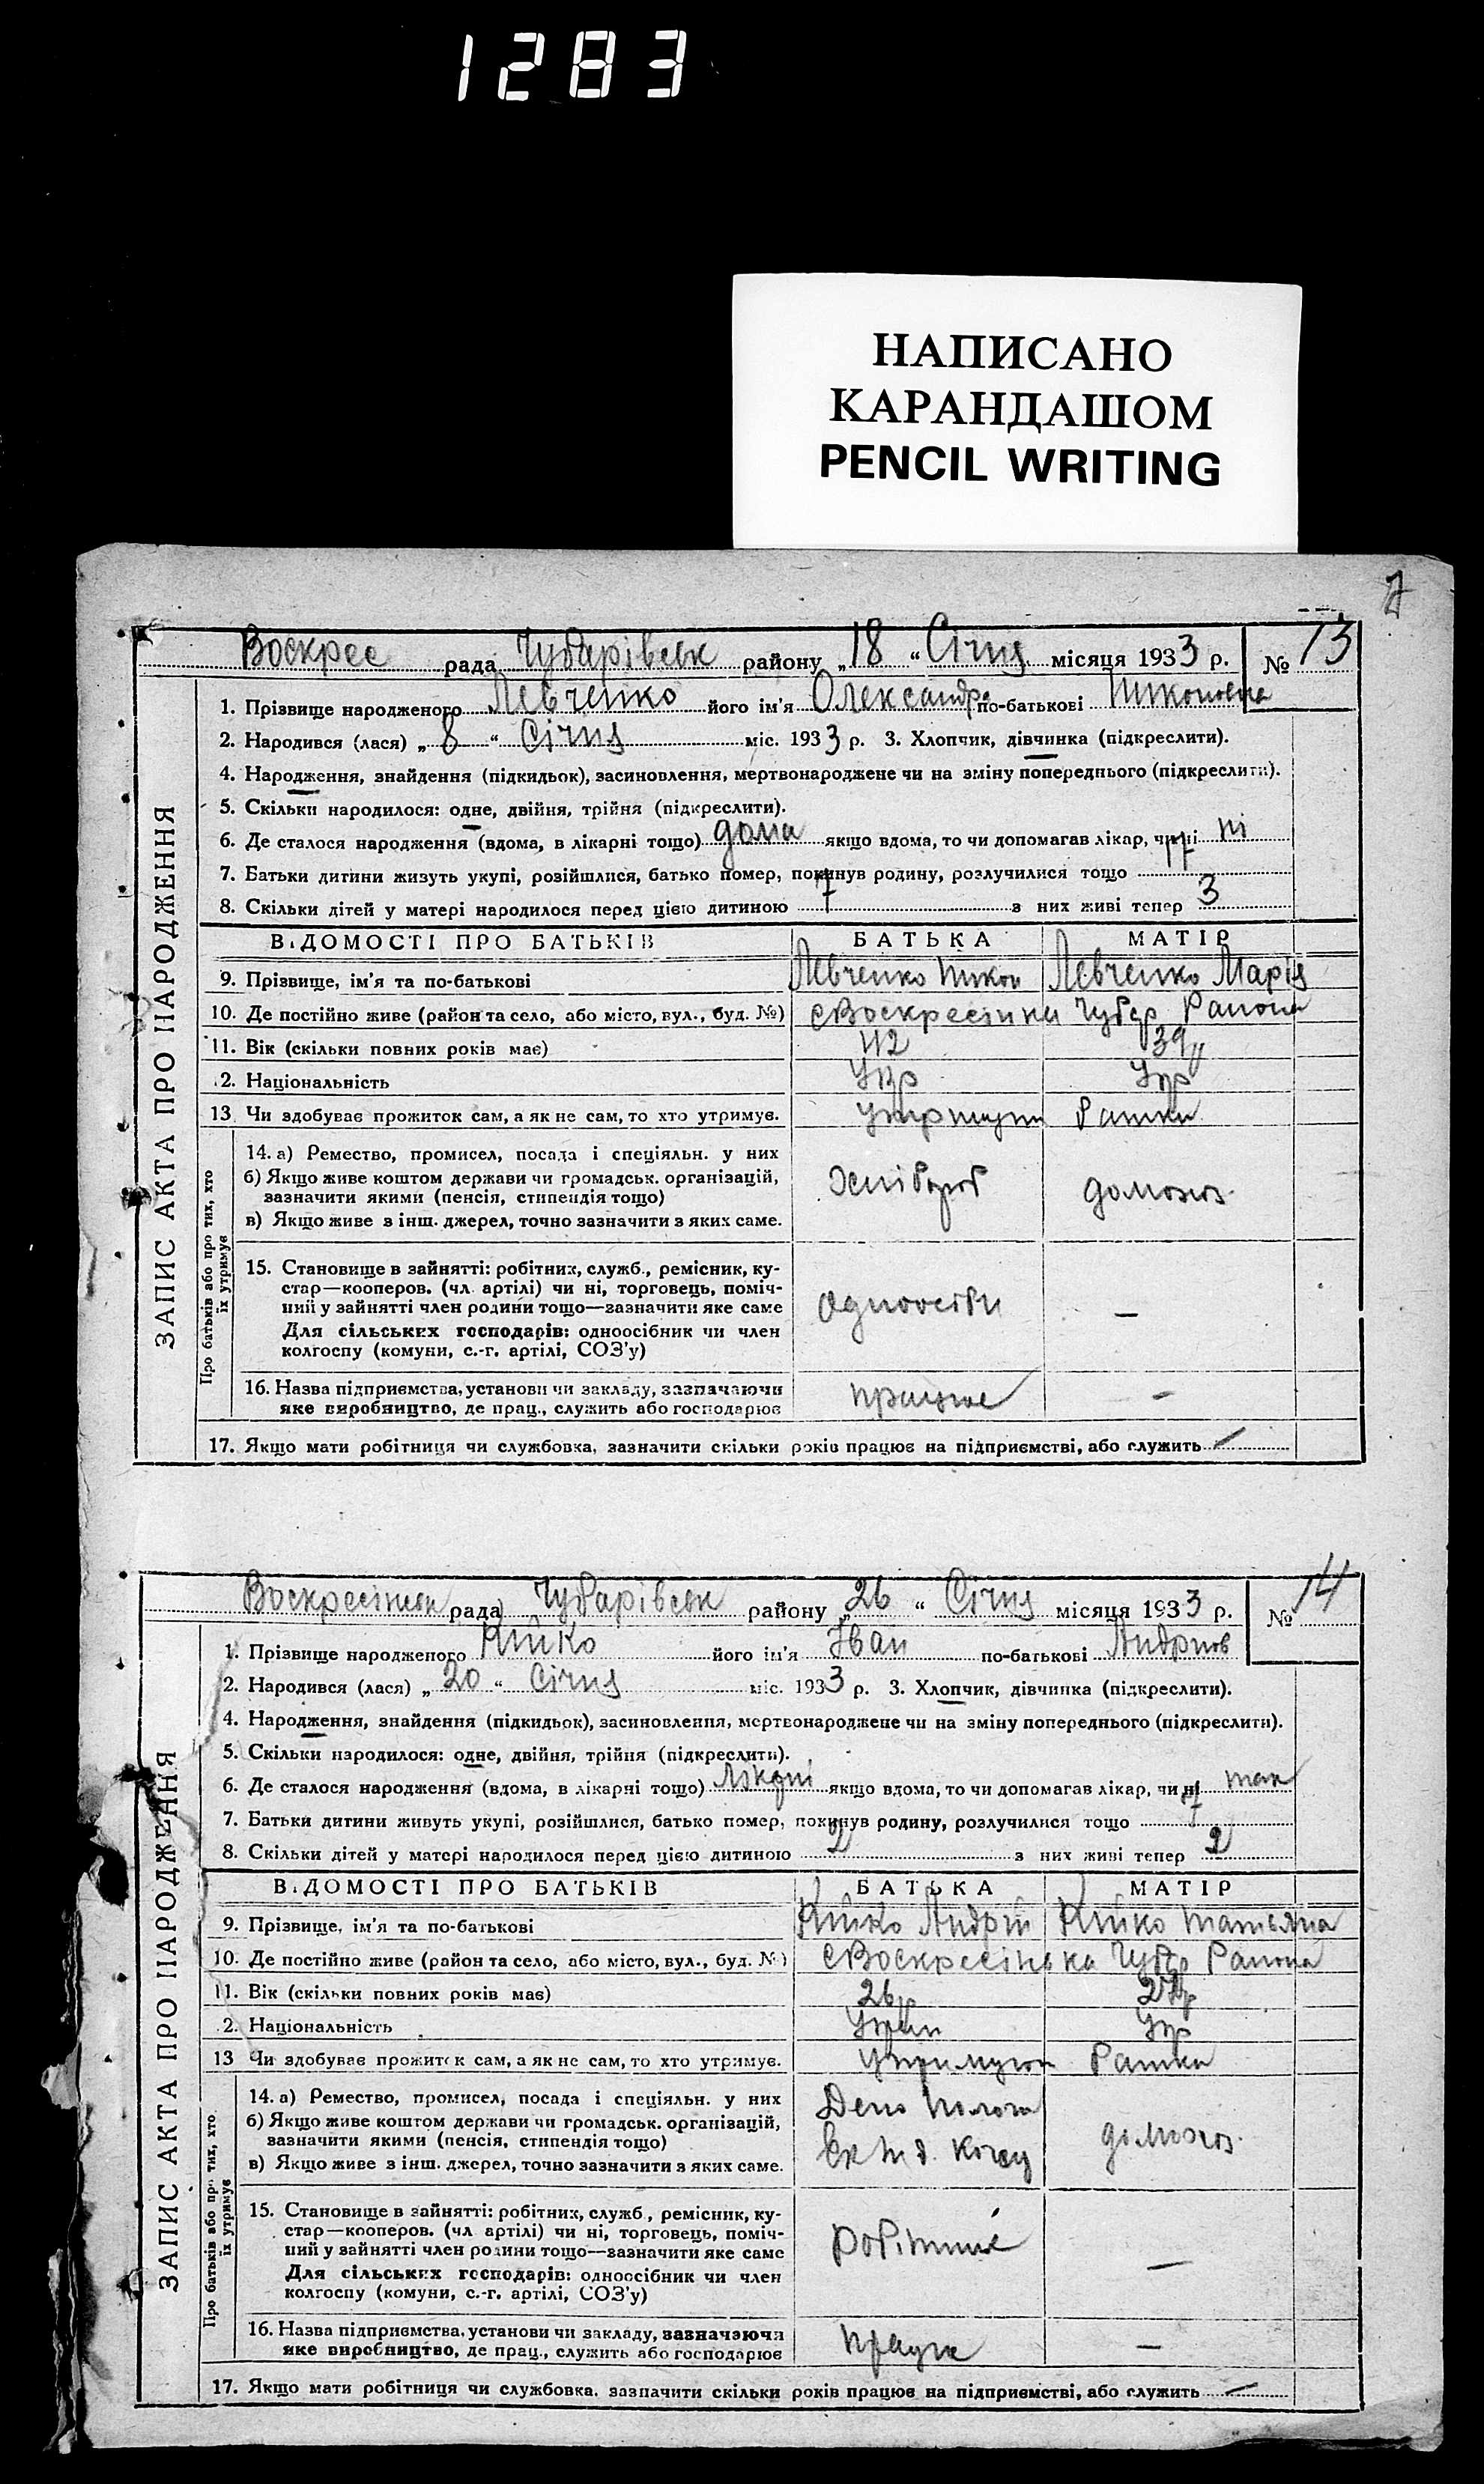 1283
НАПИСАНО
КАРАНДАШОМ
PENCIL WRITING
Воскрес рада Чубарівськ району „18“ Січня місяця 1933 р. № 13
1. Прізвище народженого Левченко його ім'я Олександра по-батькові Никоновна
2. Народився (лася) „8“ Січня міс. 1933 р. 3. Хлопчик, дівчинка (підкреслити).
4. Народження, знайдення (підкидьок), засиновлення, мертвонароджене чи на зміну попереднього (підкреслити).
5. Скільки народилося: одне, двійня, трійня (підкреслити).
6. Де сталося народження (вдома, в лікарні тощо) дома якщо вдома, то чи допомагав лікар, чи ні ні
7. Батьки дитини живуть укупі, розійшлися, батько помер, покинув родину, розлучилися тощо
8. Скільки дітей у матері народилося перед цією дитиною 7 з них живі тепер 3
ВІДОМОСТІ ПРО БАТЬКІВ БАТЬКА МАТІР
9. Прізвище, ім'я та по-батькові Левченко Никон Левченко Марія
10. Де постійно живе (район та село, або місто, вул., буд. №) с Воскресінки Чубар Района
11. Вік (скільки повних років має) 42 39
2. Національність Укр Укр
13. Чи здобуває прожиток сам, а як не сам, то хто утримує.
14. а) Ремество, промисел, посада і спеціяльн. у них
б) Якщо живе коштом держави чи громадськ. організацій,
зазначити якими (пенсія, стипендія тощо)
в) Якщо живе з інш. джерел, точно зазначити з яких саме.
Хлібороб домохоз.
15. Становище в зайнятті: робітник, служб., ремісник, ку-
стар—кооперов. (чл. артілі) чи ні, торговець, поміч-
ний у зайнятті член родини тощо—зазначити яке саме
Для сільських господарів: одноосібник чи член
колгоспу (комуни, с.-г. артілі, СОЗ'у)
Одноосібн —
16. Назва підприємства, установи чи закладу, зазначаючи
яке виробництво, де прац., служить або господарює
працює —
17. Якщо мати робітниця чи службовка, зазначити скільки років працює на підприємстві, або служить —
ЗАПИС АКТА ПРО НАРОДЖЕННЯ
Про батьків або про тих, хто
їх утримує
Воскресінськ рада Чубарівськ району „26“ Січня місяця 1933 р. № 14
1. Прізвище народженого Кийко його ім'я Іван по-батькові Андріїов
2. Народився (лася) „20“ Січня міс. 1933 р. 3. Хлопчик, дівчинка (підкреслити).
4. Народження, знайдення (підкидьок), засиновлення, мертвонароджене чи на зміну попереднього (підкреслити).
5. Скільки народилося: одне, двійня, трійня (підкреслити).
6. Де сталося народження (вдома, в лікарні тощо) якщо вдома, то чи допомагав лікар, чи ні так
7. Батьки дитини живуть укупі, розійшлися, батько помер, покинув родину, розлучилися тощо
8. Скільки дітей у матері народилося перед цією дитиною 2 з них живі тепер 2
ВІДОМОСТІ ПРО БАТЬКІВ БАТЬКА МАТІР
9. Прізвище, ім'я та по-батькові Кийко Андрій Кийко Татьяна
10. Де постійно живе (район та село, або місто, вул., буд. №) с Воскресінька Чубар Района
11. Вік (скільки повних років має) 26р
2. Національність Украін Укр
13 Чи здобуває прожиток сам, а як не сам, то хто утримує.
14. а) Ремество, промисел, посада і спеціяльн. у них
б) Якщо живе коштом держави чи громадськ. організацій,
зазначити якими (пенсія, стипендія тощо)
в) Якщо живе з інш. джерел, точно зазначити з яких саме.
Депо Пологи домохоз.
15. Становище в зайнятті: робітник, служб., ремісник, ку-
стар—кооперов. (чл артілі) чи ні, торговець, поміч-
ний у зайнятті член родини тощо—зазначити яке саме
Для сільських господарів: одноосібник чи член
колгоспу (комуни, с.-г. артілі, СОЗ'у)
робітник —
16. Назва підприємства, установи чи закладу, зазначаючи
яке виробництво, де прац., служить або господарює
працує —
17. Якщо мати робітниця чи службовка, зазначити скільки років працює на підприємстві, або служить —
ЗАПИС АКТА ПРО НАРОДЖЕННЯ
Про батьків або про тих, хто
їх утримує